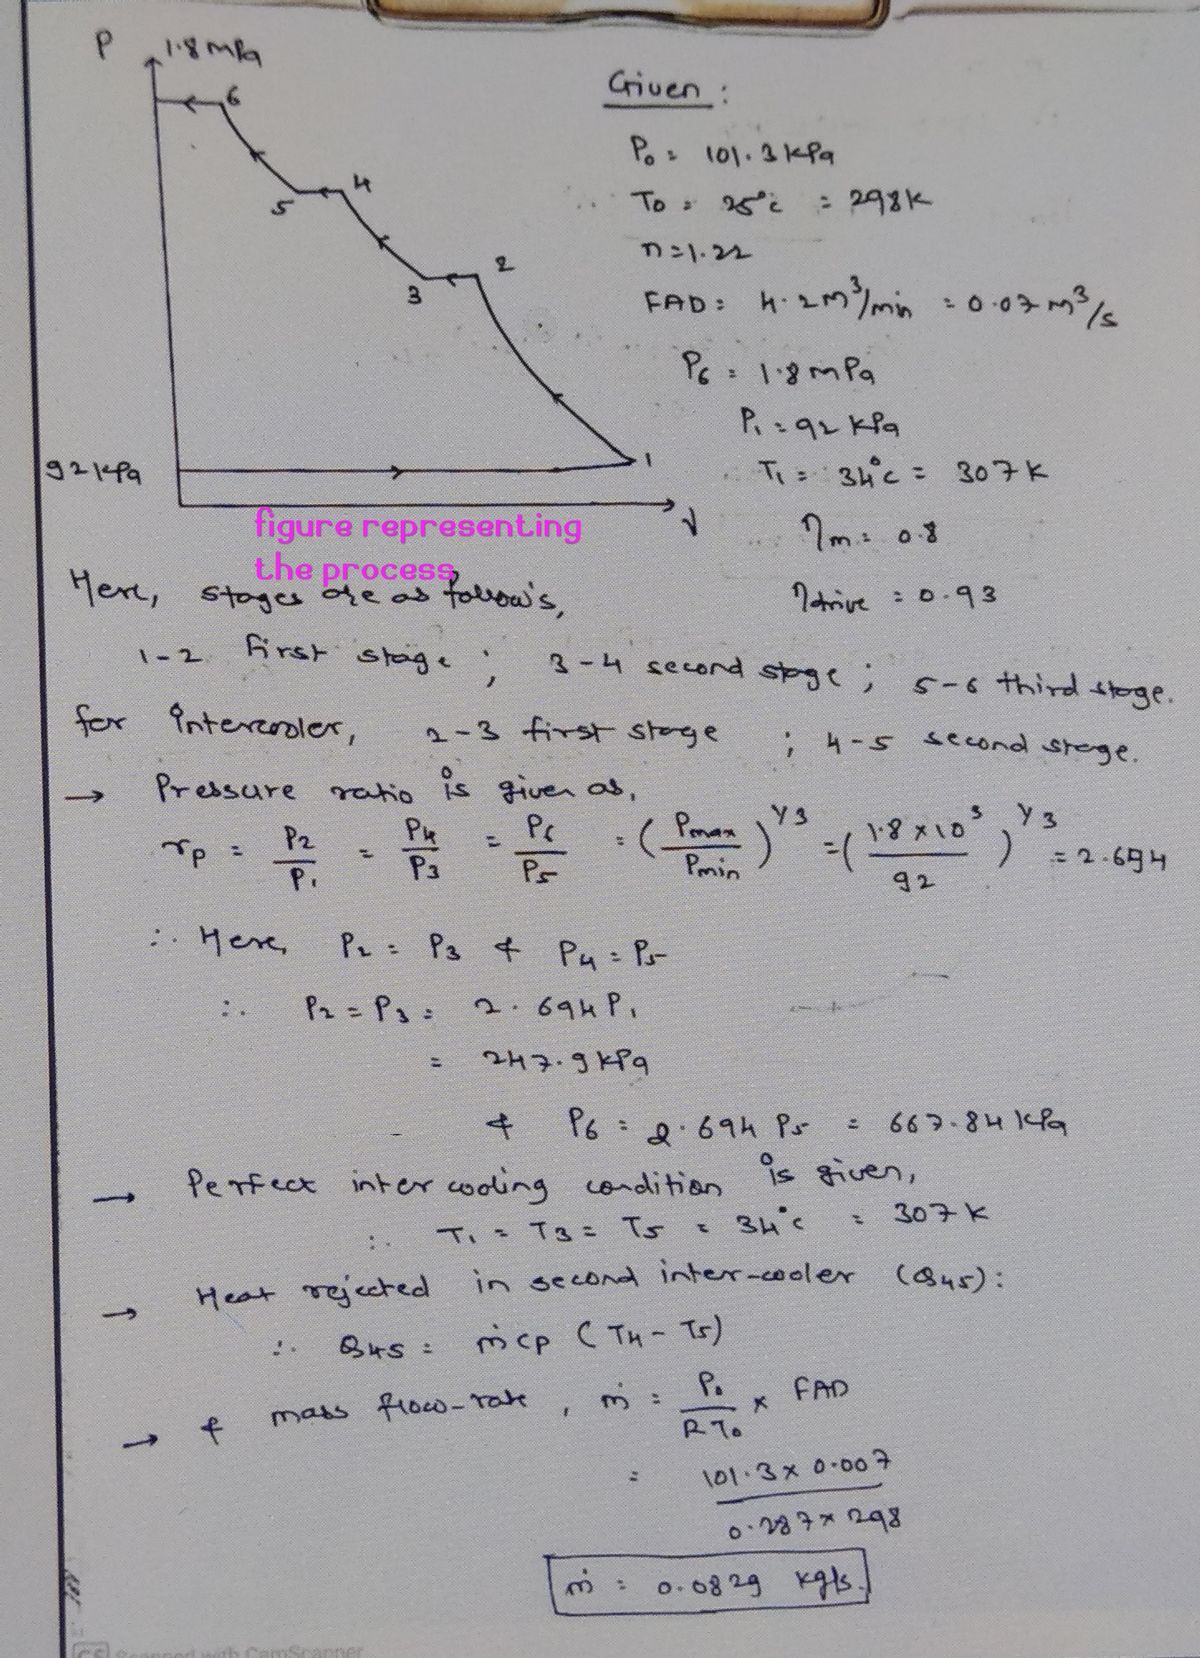 P
1.8 MPa
6
4
5
2
3
1
92 kPa
V
figure representing
the process
Given :
P₀ = 101.3 kPa
T₀ = 25°C = 298K
n = 1.22
FAD = 4.2 m³/min = 0.07 m³/s
P₆ = 1.8 MPa
P₁ = 92 kPa
T₁ = 34°C = 307 K
ηm = 0.8
ηdrive = 0.93
Here, stages are as follow's,
1-2 first stage ; 3-4 second stage ; 5-6 third stage.
for intercooler, 2-3 first stage ; 4-5 second stage.
→ Pressure ratio is given as,
rp = P₂/P₁ = P₄/P₃ = P₆/P₅ = (Pmax/Pmin)^1/3 = (1.8 × 10³/92)^1/3 = 2.694
∴ Here, P₂ = P₃ & P₄ = P₅
∴ P₂ = P₃ = 2.694 P₁
= 247.9 kPa
& P₆ = 2.694 P₅ = 667.84 kPa
→ Perfect inter cooling condition is given,
∴ T₁ = T₃ = T₅ = 34°C = 307 K
→ Heat rejected in second inter-cooler (Q₄₅):
∴ Q₄₅ = ṁ cp (T₄ - T₅)
→ & mass flow-rate, ṁ = P₀/RT₀ × FAD
= 101.3 × 0.007/0.287 × 298
ṁ = 0.0829 kg/s.
CS Scanned with CamScanner